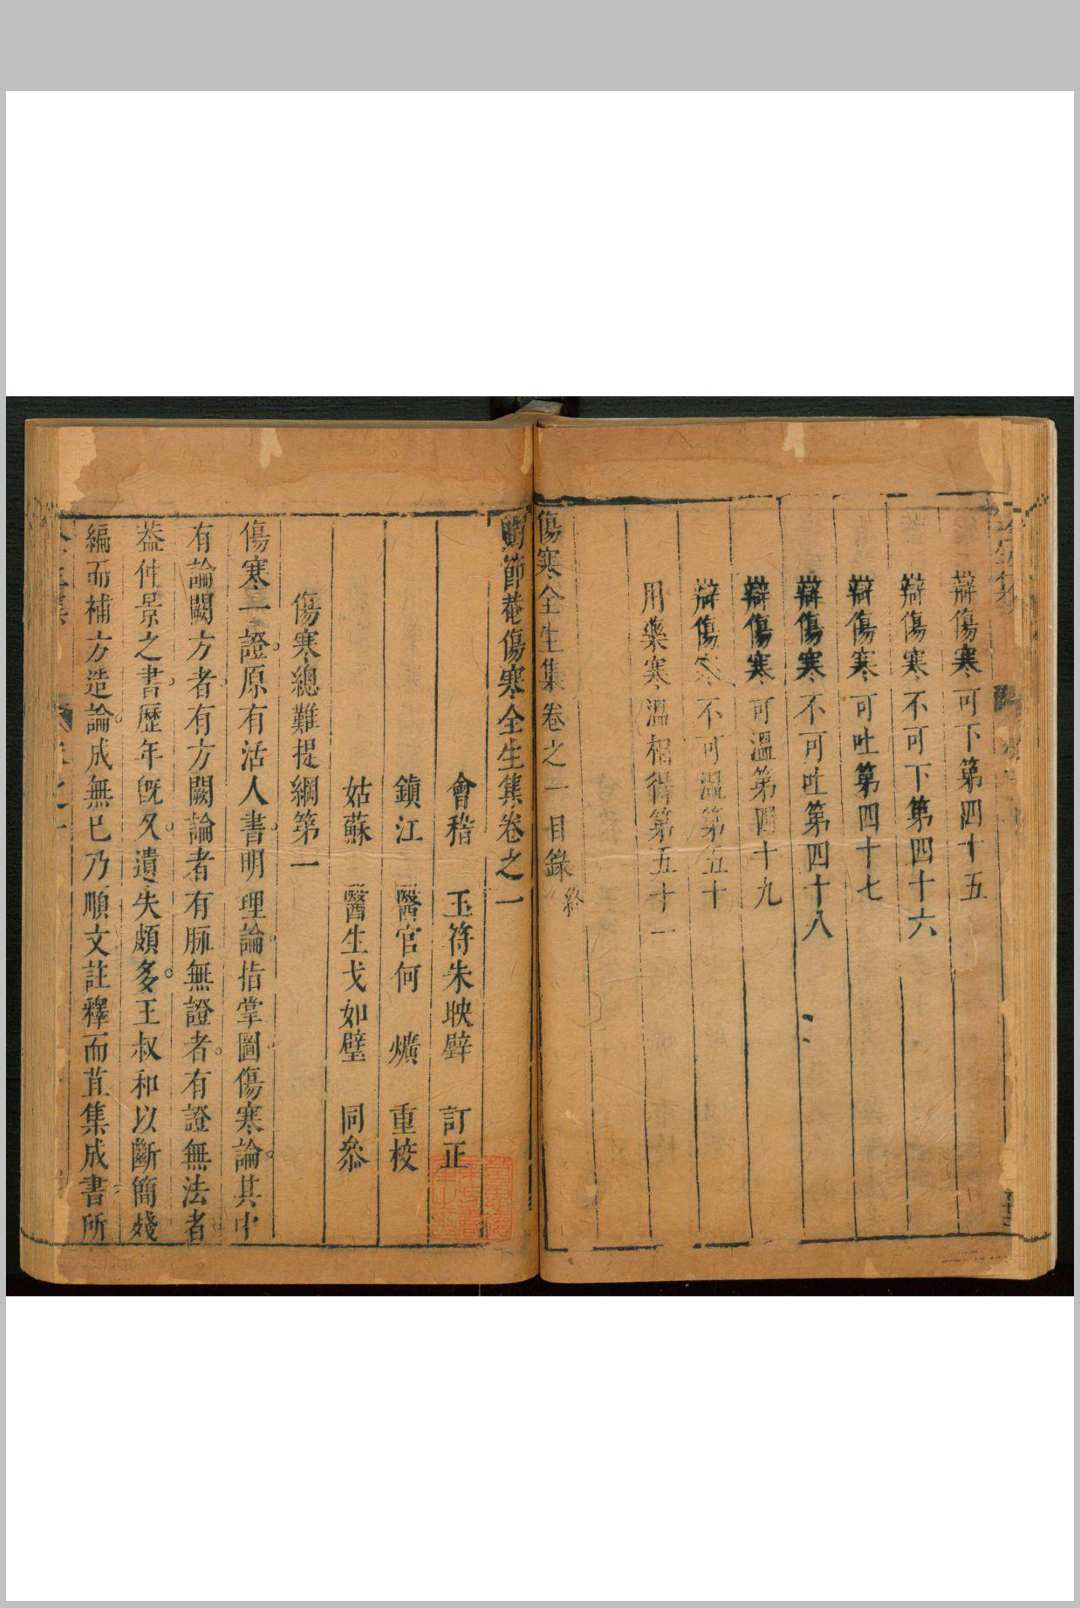 辯傷寒可下第四十五
辯傷寒不可下第四十六
辯傷寒可吐第四十七
辯傷寒不可吐第四十八
辯傷寒可溫第四十九
辯傷寒不可溫第五十
用藥寒溫相得第五十一
傷寒全生集卷之一目錄終
陶節菴傷寒全生集卷之一
會稽 玉符朱映璧 訂正
鎮江 醫官何 爌 重挍
姑蘇 醫生戈如璧 同叅
傷寒總難提綱第一
傷寒一證原有活人書明理論指掌圖傷寒論其中
有論闕方者有方闕論者有脉無證者有證無法者
葢仲景之書歷年旣久遺失頗多王叔和以斷簡殘
編而補方造論成無已乃順文註釋而苴集成書所